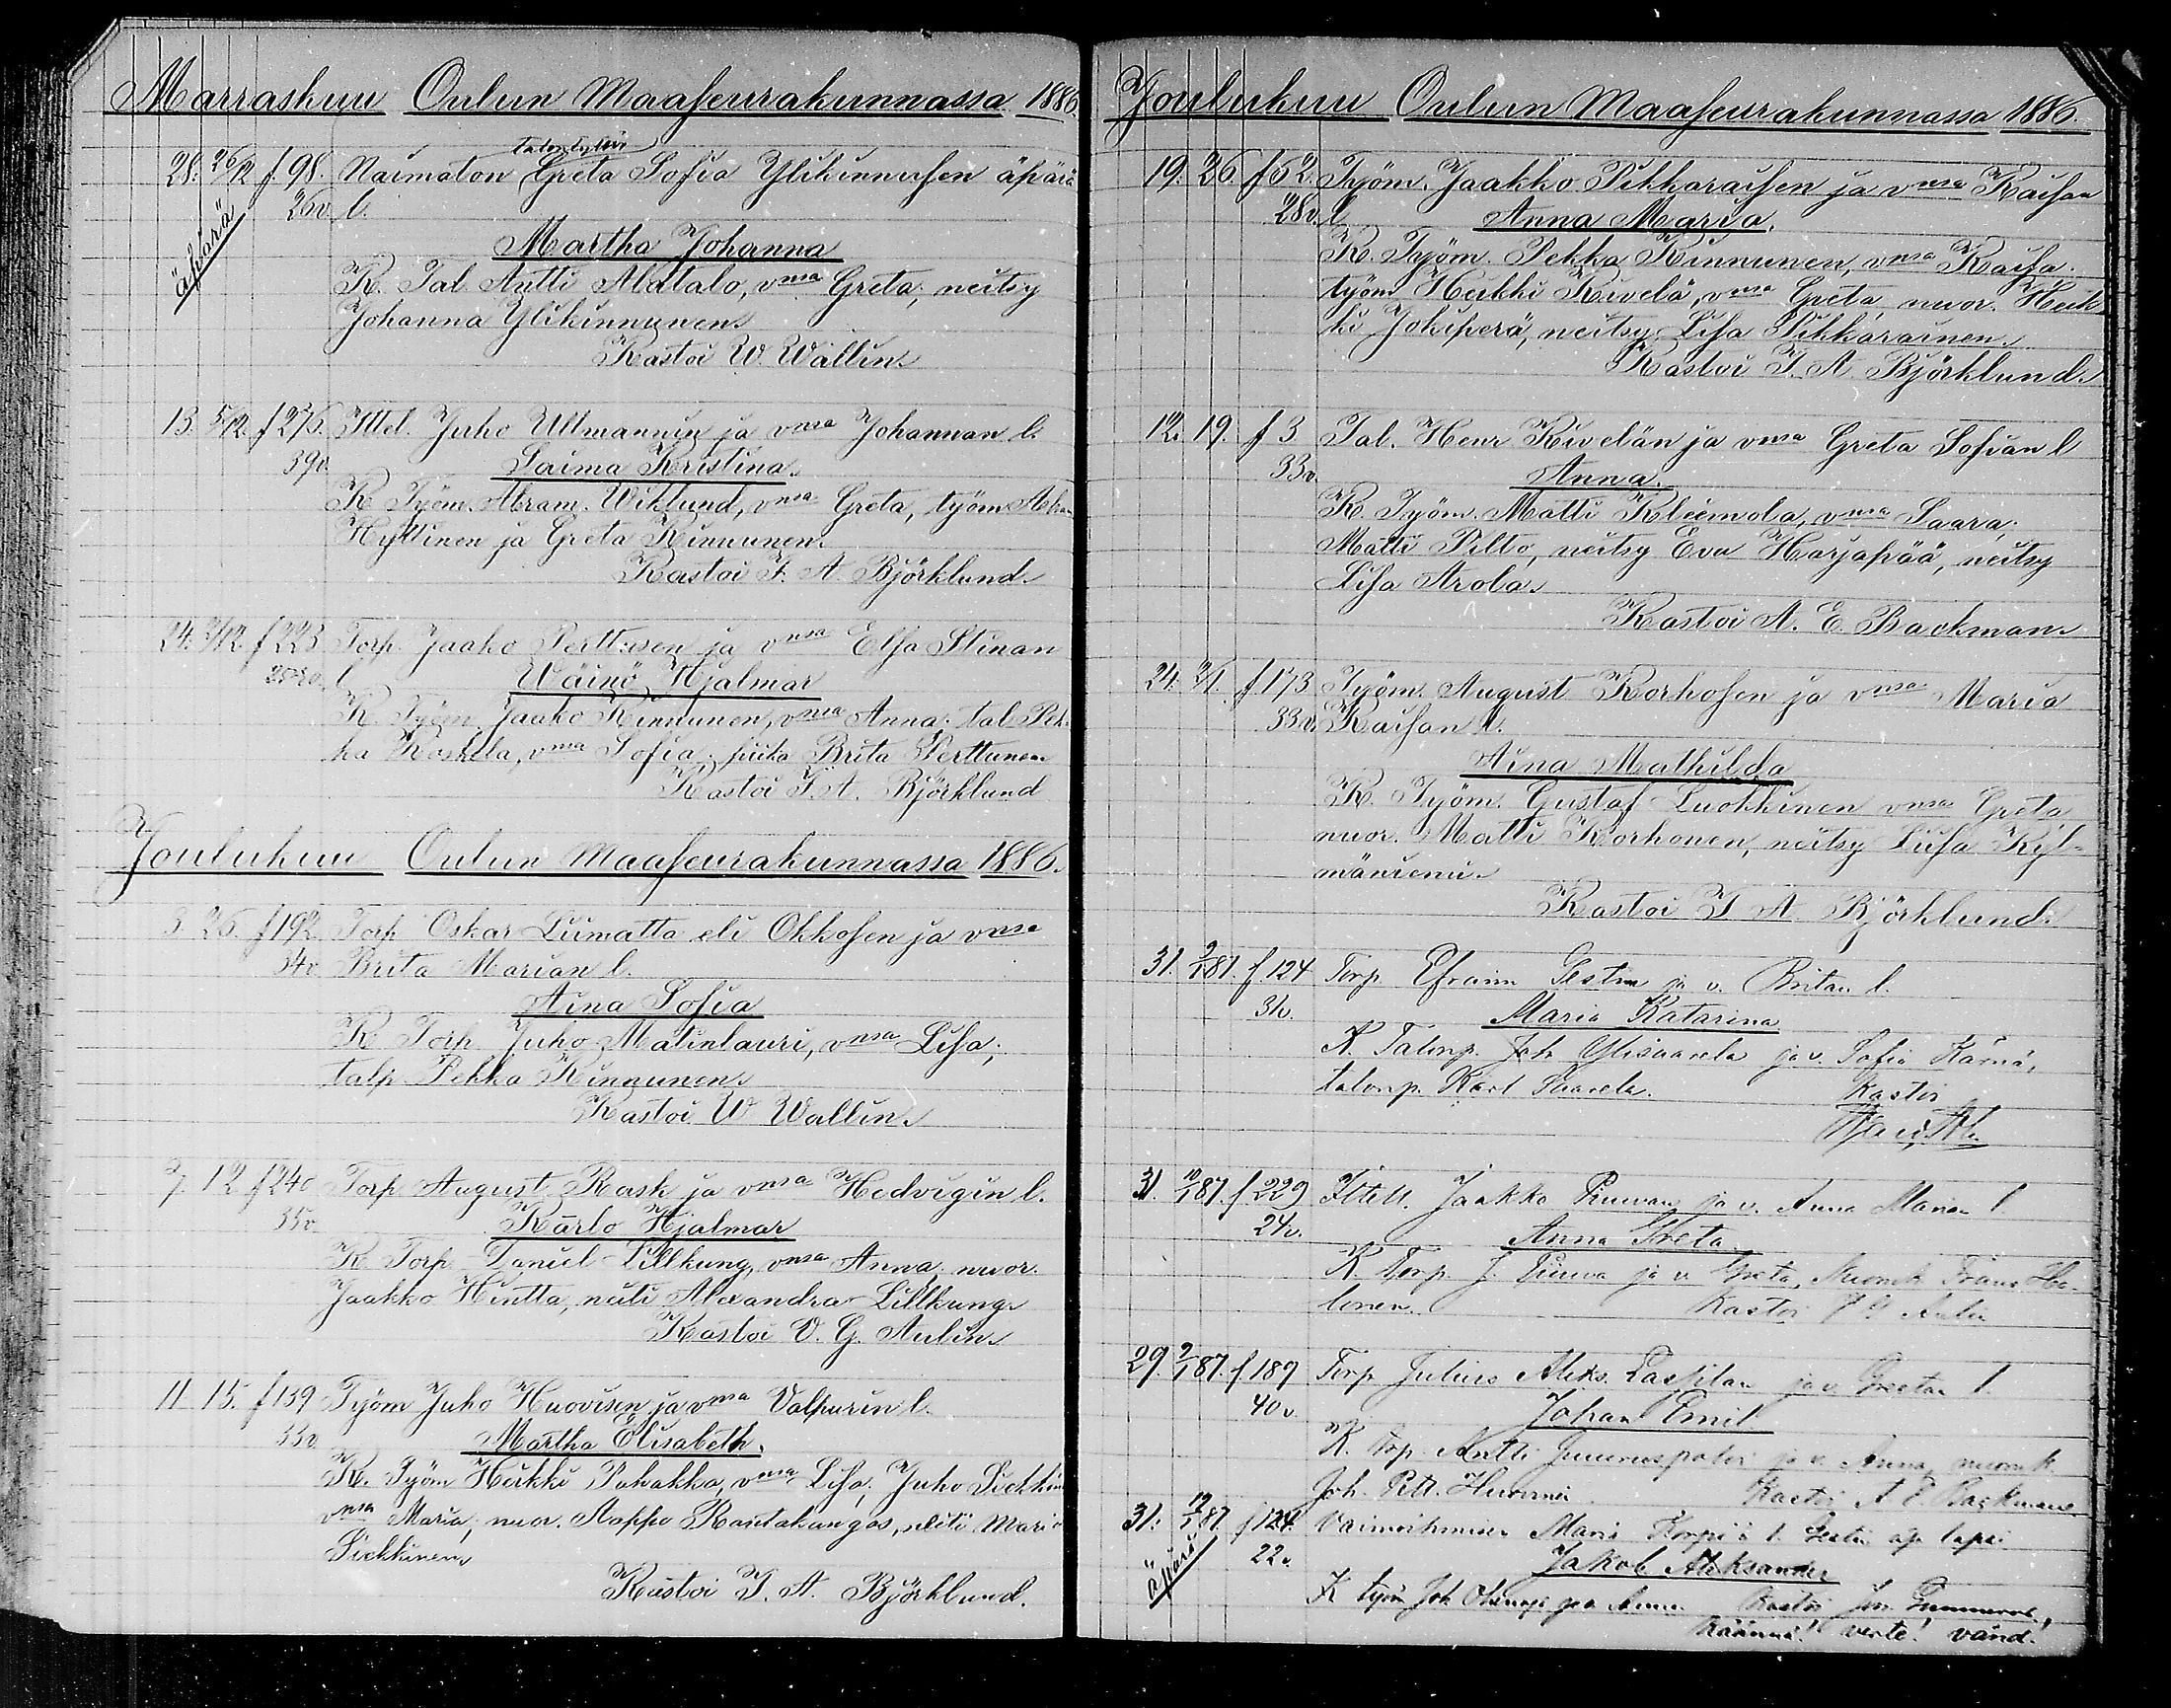 Marraskuu Oulun Maaseurakunnassa 1886.
talontytön
28. 26/12 f. 98. Naimaton Greta Sofia Ylikinnusen äpärä
26v. l.
äpärä
Martha Johanna
K. Tal. Antti Alatalo, vnsa Greta, neitsy
Johanna Ylikinnunen.
Kastoi W. Wallin.
13. 5/12. f 276. Ittel. Juho Ullmannin ja vnsa Johannan l.
39v. Saima Kristina.
K Työm. Abram. Wiklund, vnsa Greta, työm
Hyttinen ja Greta Kinnunen.
Kastoi J. A. Björklund.
24. /12. f 223 Torp. Jaako Perttusen ja vnsa Elsa Stinan
l. Wäinö Hjalmar
K. Työm. Jaako Kinnunen, vnsa Anna; tal. Pek-
ka Koskela, vnsa Sofia; piika Brita Perttunen.
Kastoi J. A. Björklund
Joulukuu Oulun Maaseurakunnassa 1886.
3. 26. f 192 Torp Oskar Liimatta eli Okkosen ja vnsa
34v. Brita Marian l.
Aina Sofia
K. Torp. Juho Matinlauri, vnsa Lisa;
talp. Pekka Kinnunen.
Kastoi W Wallin.
7. 12 f 240 Torp August Rask ja vnsa Hedvigin l.
35v. Karlo Hjalmar
K Torp Daniel Lillkung, vnsa Anna, nuor.
Jaakko Hintta, neiti Alexandra Lillkung.
Kastoi O. G. Aulin.
11. 15. f 139 Työm Juho Huovisen ja vnsa Valpurin l.
33v. Martha Elisabeth.
K. Työm Heikki Pahakka, vnsa Lisa; Juho
vnsa Maria; nuor. Aappo Rautakangas, neiti Maria
Sickkinen.
Kastoi J. A. Björklund.
Joulukuu Oulun Maaseurakunnassa 1886.
19. 26. f 52. Työm. Jaakko Pikkaraisen ja vnsa Kaisan
28v. l Anna Maria.
K. Työm. Pekka Kinnunen, vnsa Kaisa.
työm Heikki Kivelä, vnsa Greta, nuor. Heik
ki Jokiperä, neitsy Lisa Pikkarainen.
Kastoi J. A. Björklund.
12. 19. f 3 Tal. Henr Kivelän ja vnsa Greta Sofian l
33v. Anna.
K. Työm. Matti Kleemola, vnsa Saara;
Matti Pilto, neitsy Eva Harjapää, neitsy
Lisa Arola.
Kastoi A. E. Backman.
24. 2/1. f 173 Työm. August Korhosen ja vnsa Maria
33v. Kaisan l.
Aina Mathilda
K. Työm. Gustaf Luokkinen vnsa Greta
nuor. Matti Korhonen, neitsy Liisa Kyl-
mäniemi.
Kastoi J A Björklund.
31. 9/1 87. f. 124 Torp Efraim ja v. Britan l.
31v. Maria Katarina
K. Talonp. Joh Ylisaarela ja v. Sofia
talonp. Karl Saarela. Kastoi
31. 10/1 87. f. 229 Ittell. Jaakko ja v. Anna Marian l.
24v. Anna Greta
K. Torp. J. ja v. Greta, Frans
Kastoi
29. 2/1 87. f 189 Torp Julius Aleks. Lassilan ja v. Greetan l.
40v. Johan Emil
K. Torp. Antti ja v. Anna, nuorm.
Joh. Pett. Kastoi A. E. Backman
31. 12/1 87. f 124. Vaimoihmisen Maria äp. lapsi
äpärä
22v. Jakob Aleksander
K työm Joh Kastoi
Käännä! verte! vänd!